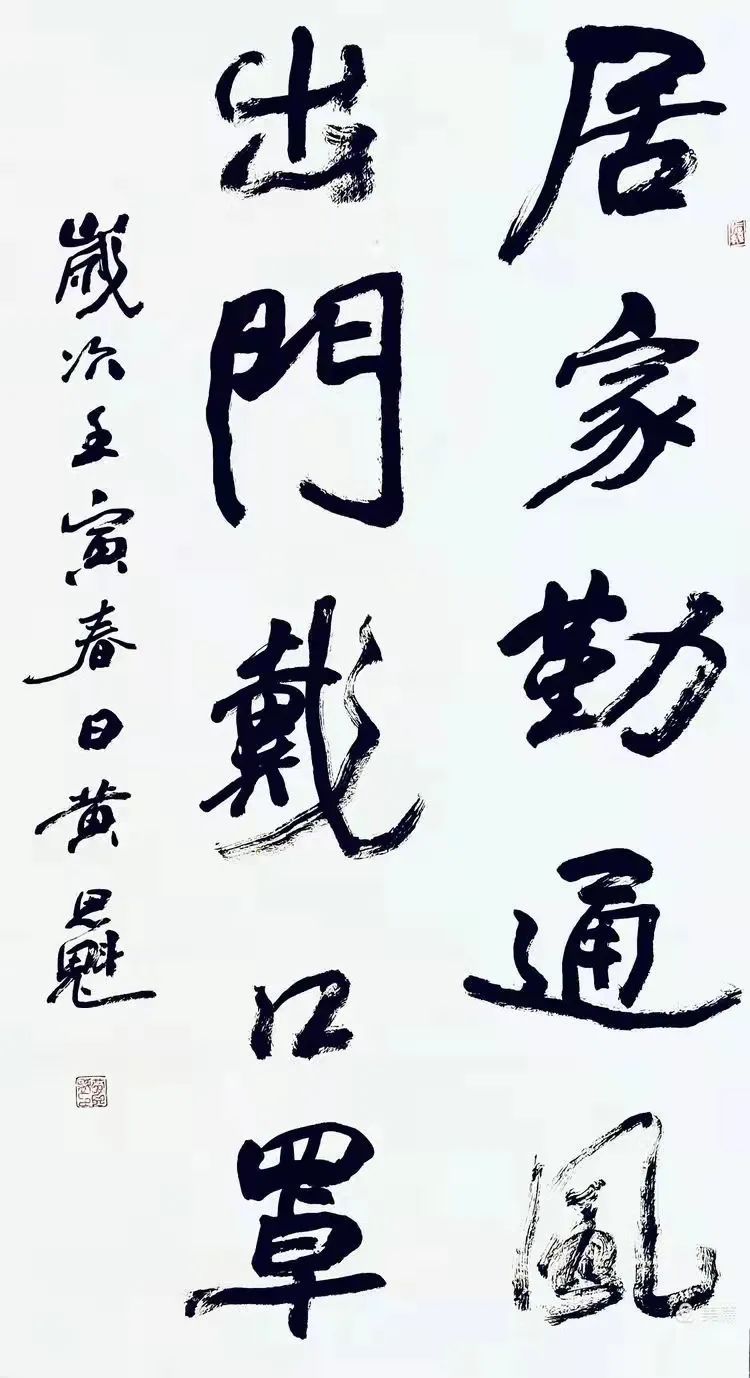 居家勤通風
出門戴口罩
歲次壬寅春日黄思魁
美篇